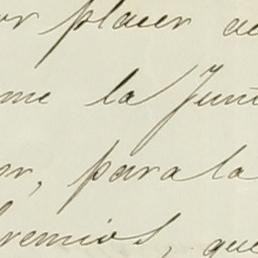 or placer de
me la Junt
or, para la
premios, que